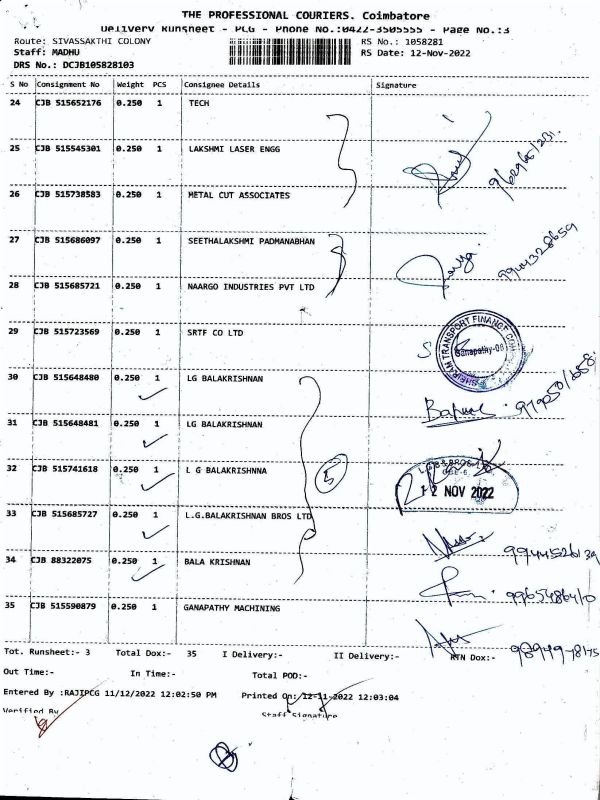 THE PROFESSIONAL COURIERS. Coimbatore
Delivery Runsheet - PCG - Phone No.:0422-3505555 - Page No.:3
Route: SIVASSAKTHI COLONY
RS No.: 1058281
Staff: MADHU
RS Date: 12-Nov-2022
DRS No.: DCJB105828103
S No Consignment No Weight PCS Consignee Details Signature
24 CJB 515652176 0.250 1 TECH
25 CJB 515545301 0.250 1 LAKSHMI LASER ENGG
26 CJB 515738583 0.250 1 METAL CUT ASSOCIATES
27 CJB 515686097 0.250 1 SEETHALAKSHMI PADMANABHAN
9944328659
28 CJB 515685721 0.250 1 NAARGO INDUSTRIES PVT LTD
29 CJB 515723569 0.250 1 SRTF CO LTD
SHRIRAM TRANSPORT FINANCE COM
Ganapathy-06
30 CJB 515648480 0.250 1 LG BALAKRISHNAN
31 CJB 515648481 0.250 1 LG BALAKRISHNAN
32 CJB 515741618 0.250 1 L G BALAKRISHNNA
5
12 NOV 2022
33 CJB 515685727 0.250 1 L.G.BALAKRISHNAN BROS LTD
34 CJB 88322075 0.250 1 BALA KRISHNAN
35 CJB 515590879 0.250 1 GANAPATHY MACHINING
Tot. Runsheet:- 3 Total Dox:- 35 I Delivery:- II Delivery:- RTN Dox:-
Out Time:- In Time:- Total POD:-
Entered By :RAJIPCG 11/12/2022 12:02:50 PM Printed On: 12-11-2022 12:03:04
Verified By Staff Signature